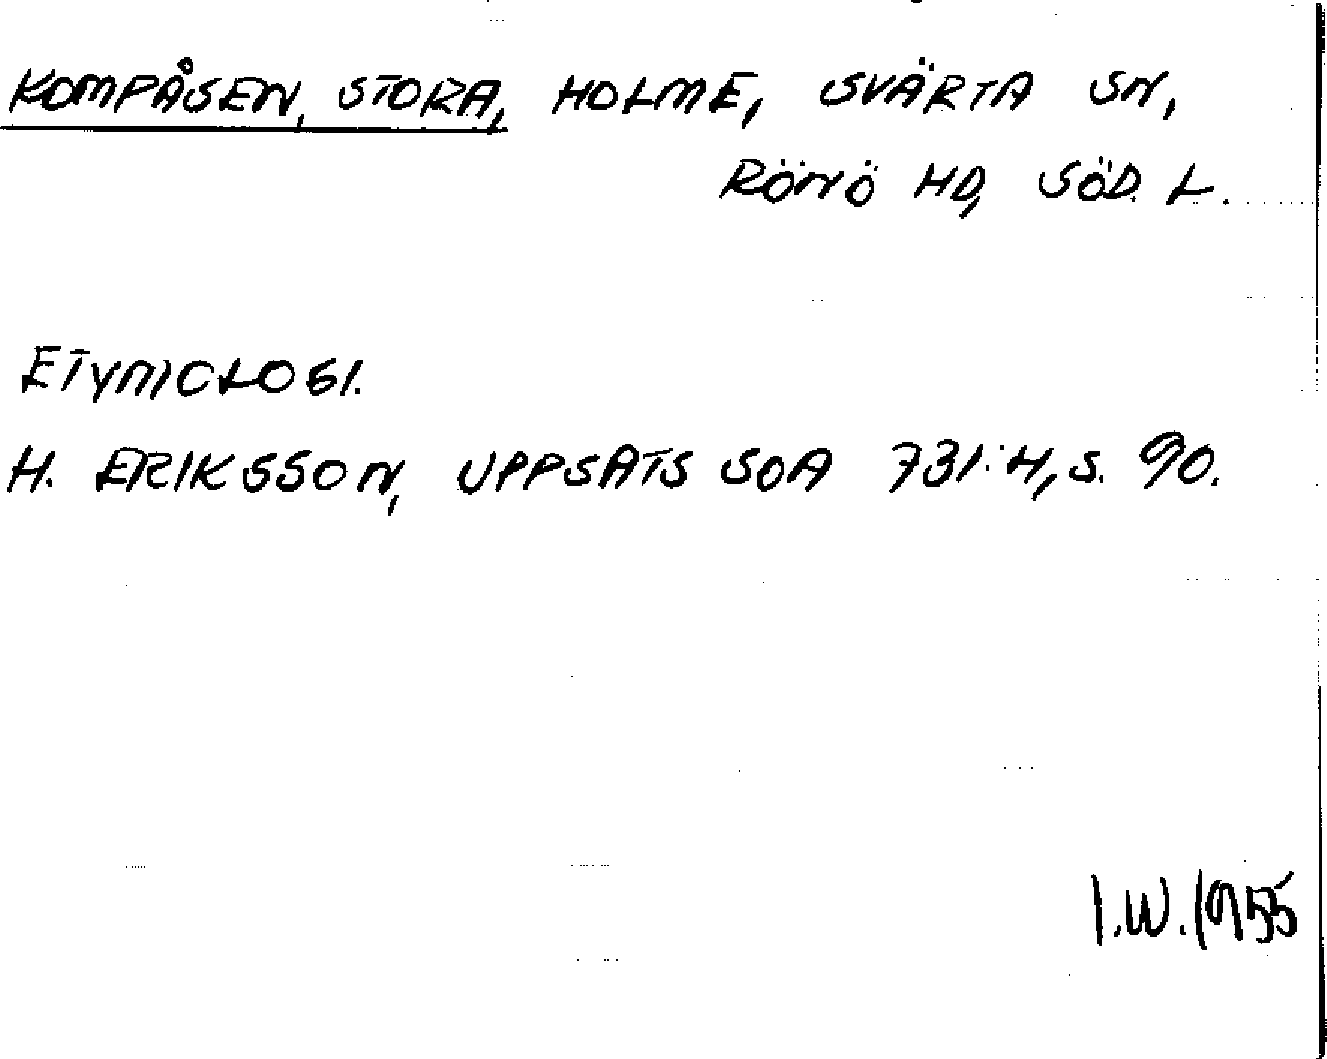 KOMPÅSEN, STORA, HOLME, SVÄRTA SN,
RÖNÖ HD, SÖD. L.
ETYMOLOGI.
H. ERIKSSON, UPPSATS SOA 731:4, S. 90.
I.W. 1955